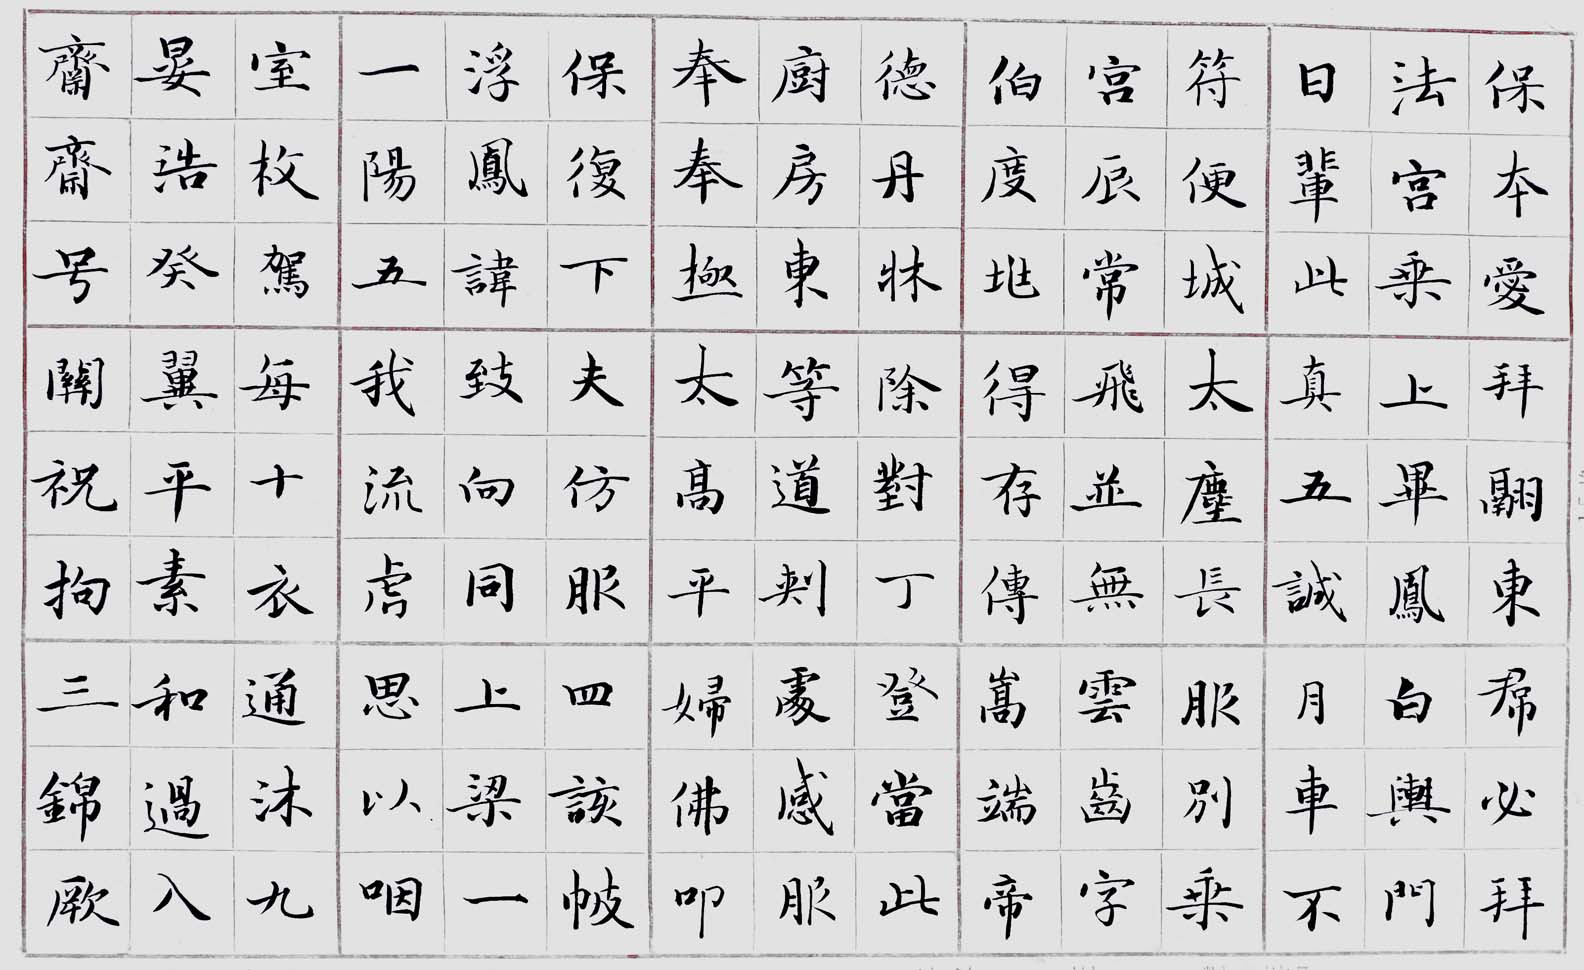 保本愛拜翩東帬必拜
法宮乘上畢鳳白輿門
日輩此真五誠月車不
符便城太塵長服別乘
宮辰常飛並無雲齒字
伯度地得存傳嵩端帝
德丹牀除對丁登當此
廚房東等道刾處感服
奉奉極太高平婦佛叩
保復下夫仿服四該帔
浮鳳諱致向同上梁一
一陽五我流虐思以咽
室枚駕每十衣通沐九
晏浩癸翼平素和過入
齋齋号關祝拘三錦厥